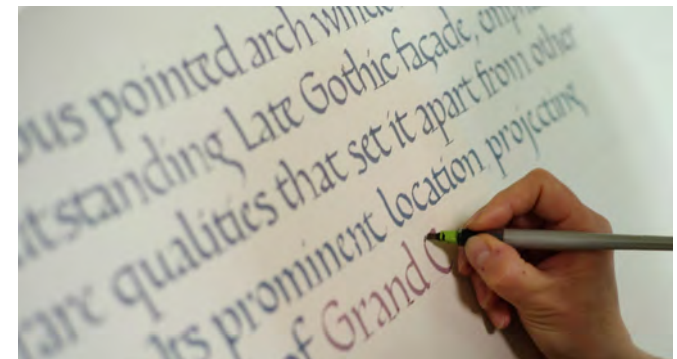 ous pointed arch windo
tstanding Late Gothic façade, empha
rare qualities that set it apart from other
Its prominent location projecting
of Grand C